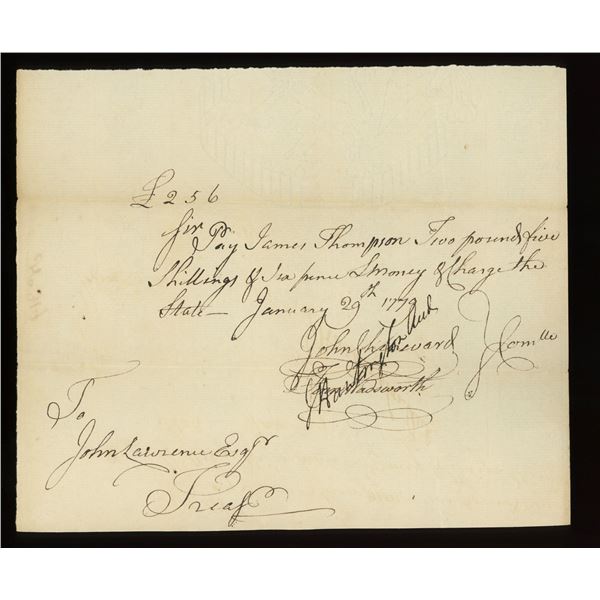 £ 2 5 6
Sir Pay James Thompson Two pounds five
Shillings & six pence L money & Charge the
State — January 29th 1779
John Chenevard
Com tte
Huntington Aud
Wadsworth
To
John Lawrence Esqr
Treasr